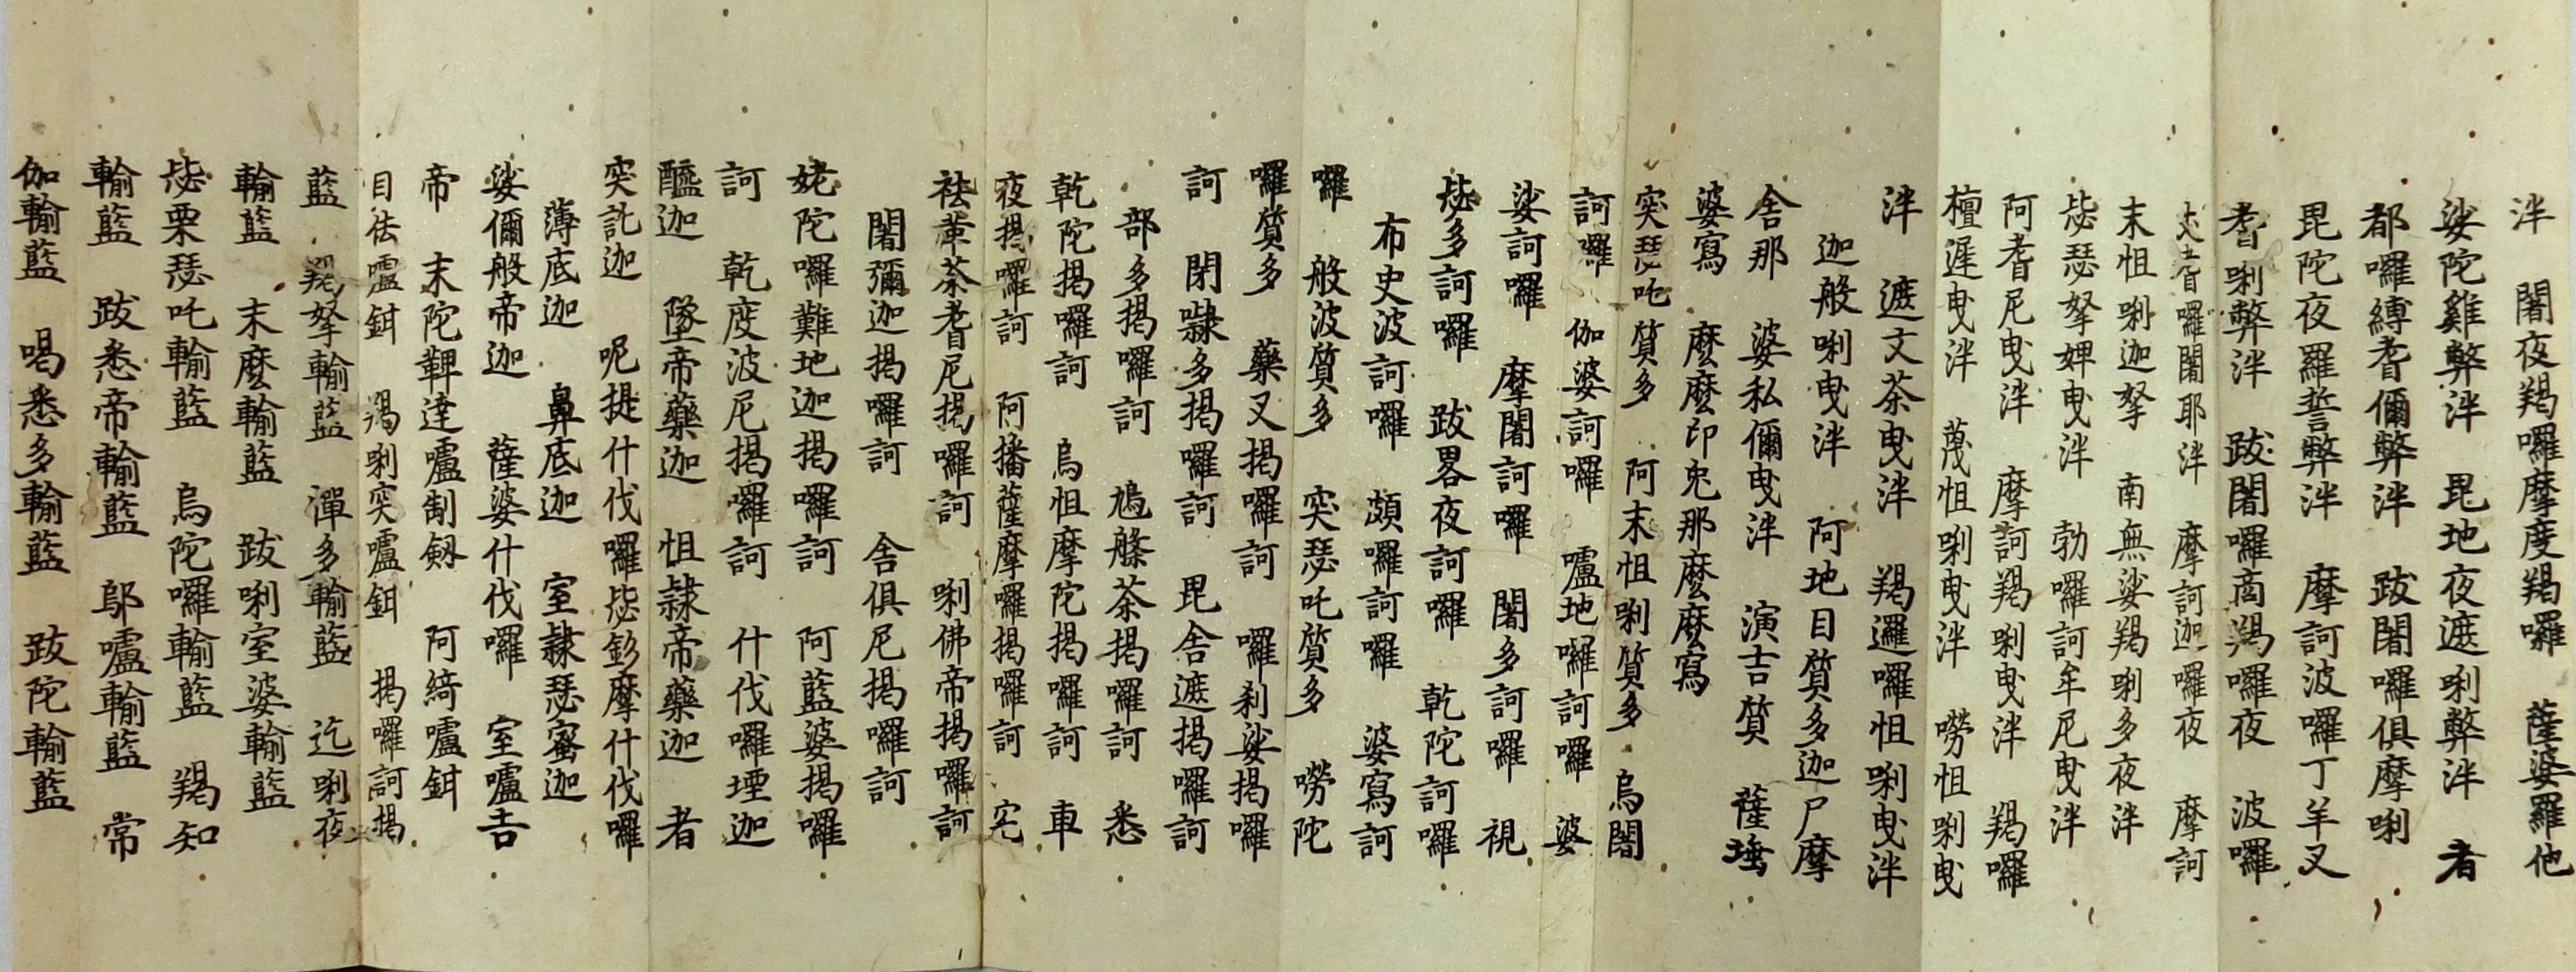 泮 闍夜羯囉摩度羯囉 薩婆羅他
娑陀雞弊泮 毘地夜遮唎弊泮 者
都囉縛耆儞弊泮 跋闍囉俱摩唎
毘陀夜羅誓弊泮 摩訶波囉丁羊叉
耆唎弊泮 跋闍囉商羯囉夜 波囉
丈耆囉闍耶泮 摩訶迦囉夜 摩訶
末怛唎迦拏 南無娑羯唎多夜泮
毖瑟拏婢曳泮 勃囉訶牟尼曳泮
阿耆尼曳泮 摩訶羯唎曳泮 羯囉
檀遲曳泮 蔑怛唎曳泮 嘮怛唎曳
泮 遮文茶曳泮 羯邏囉怛唎曳泮
迦般唎曳泮 阿地目質多迦尸摩
舍那 婆私儞曳泮 演吉質 薩埵
婆寫 麼麼印兔那麼麼寫
突瑟吒質多 阿末怛唎質多 烏闍
訶囉 伽婆訶囉 嚧地囉訶囉 婆
娑訶囉 摩闍訶囉 闍多訶囉 視
毖多訶囉 跋畧夜訶囉 乾陀訶囉
布史波訶囉 頗囉訶囉 婆寫訶
囉 般波質多 突瑟吒質多 嘮陀
囉質多 藥叉揭囉訶 囉剎娑揭囉
訶 閉㘑多揭囉訶 毘舍遮揭囉訶
部多揭囉訶 鳩槃茶揭囉訶 悉
乾陀揭囉訶 烏怛摩陀揭囉訶 車
夜揭囉訶 阿播薩摩囉揭囉訶 宅
袪革茶耆尼揭囉訶 唎佛帝揭囉訶
闍彌迦揭囉訶 舍俱尼揭囉訶
姥陀囉難地迦揭囉訶 阿藍婆揭囉
訶 乾度波尼揭囉訶 什伐囉堙迦
醯迦 墜帝藥迦 怛隸帝藥迦 者
突託迦 呢提什伐囉毖釤摩什伐囉
薄底迦 鼻底迦 室隸瑟蜜迦
娑儞般帝迦 薩婆什伐囉 室嚧吉
帝 末陀鞞達嚧制劒 阿綺嚧鉺
目佉嚧鉺 羯唎突嚧鉺 揭囉訶揭
藍 羯拏輸藍 憚多輸藍 迄唎夜
輸藍 末麼輸藍 跋唎室婆輸藍
毖栗瑟吒輸藍 烏陀囉輸藍 羯知
輸藍 跋悉帝輸藍 鄔嚧輸藍 常
伽輸藍 喝悉多輸藍 跋陀輸藍